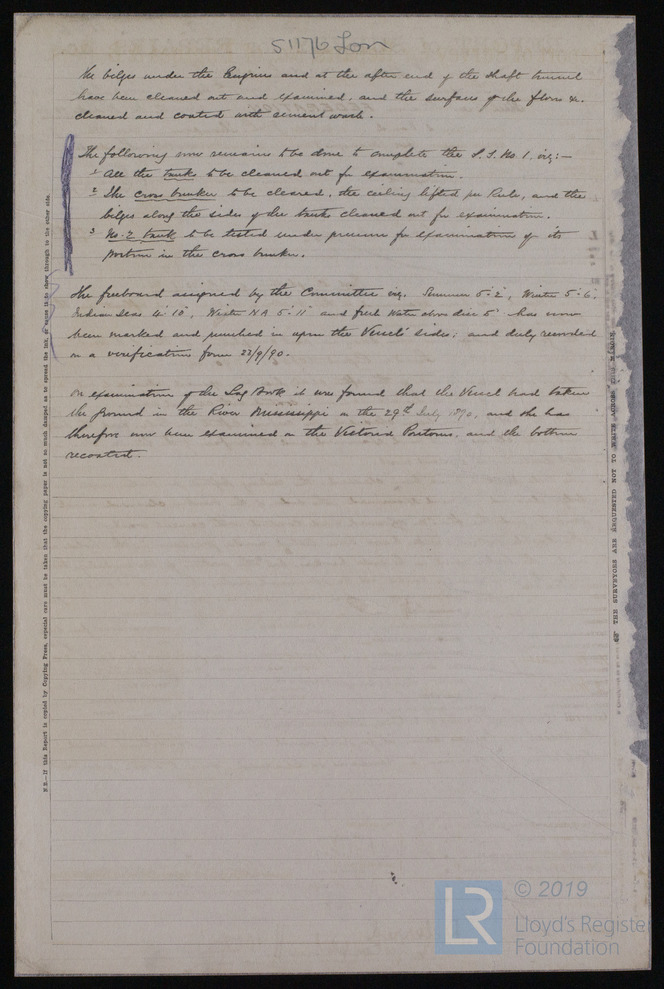 51176 Lon
The bilges under the Engines and at the after end of the shaft tunnel
have been cleaned out and examined, and the surfaces of the floors &c.
cleaned and coated with cement wash.
The following now remains to be done to complete the S.S. No 1. viz:-
1 All the tanks to be cleaned out for examination.
2 The cross bunker to be cleared, the ceiling lifted per Rule, and the
bilges along the sides of the tanks cleaned out for examination.
3 No. 2 tank to be tested under pressure for examination of its
portion in the cross bunker.
The freeboard assigned by the Committee viz. Summer 5:2", Winter 5:6,
Indian Seas 4:10", Winter N.A. 5:11" and fresh Water above disc 5" has now
been marked and punched in upon the Vessels' sides; and duly recorded
on a verification form 22/9/90.
On examination of the Log Book it was found that the Vessel had taken
the Ground in the River Mississippi on the 29th July 1890, and she has
therefore now been examined on the Victoria Pontoons, and the bottom
recoated.
N.B.—If this Report is copied by Copying Press, especial care must be taken that the copying paper is not so much damped as to spread the ink, or cause it to show through to the other side.
THE SURVEYORS ARE REQUESTED NOT TO WRITE
LR
© 2019
Lloyd's Register
Foundation